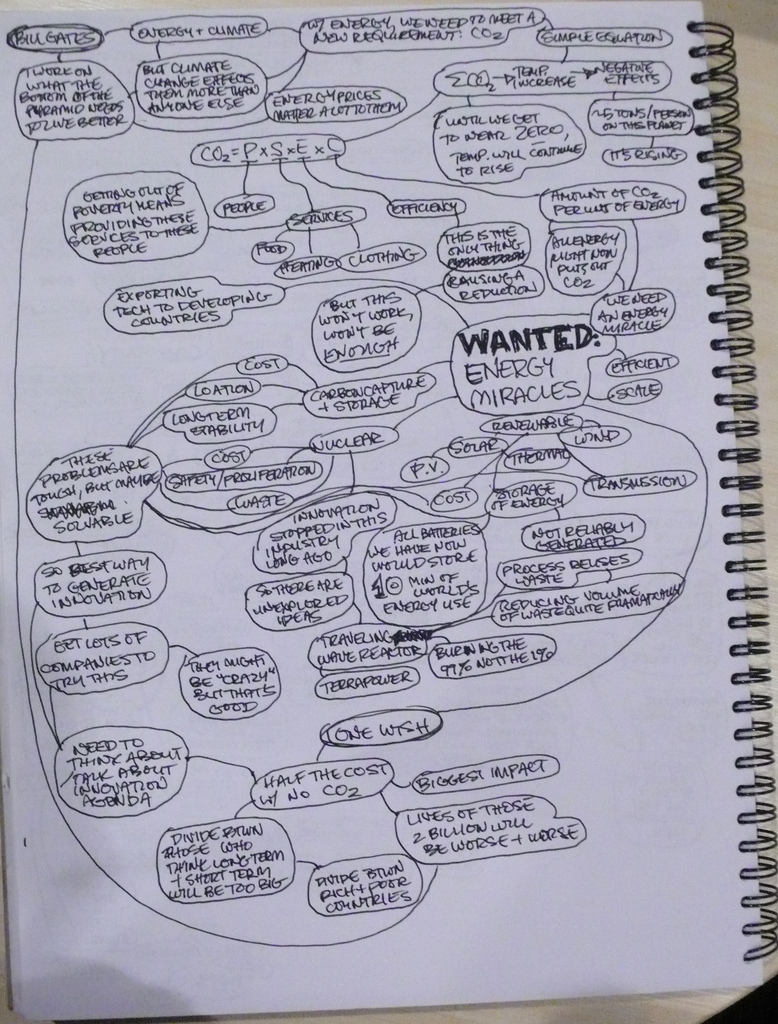 BILL GATES
ENERGY + CLIMATE
W/ ENERGY, WE NEED TO MEET A
NEW REQUIREMENT: CO2
SIMPLE EQUATION
I WORK ON
WHAT THE
BOTTOM OF THE
PYRAMID NEEDS
TO LIVE BETTER
BUT CLIMATE
CHANGE EFFECTS
THEM MORE THAN
ANYONE ELSE
ENERGY PRICES
MATTER A LOT TO THEM
ΣCO2 → TEMP. INCREASE → NEGATIVE
EFFECTS
UNTIL WE GET
TO NEAR ZERO,
TEMP. WILL CONTINUE
TO RISE
~5 TONS/PERSON
ON THIS PLANET
IT'S RISING
CO2 = P x S x E x C
GETTING OUT OF
POVERTY MEANS
PROVIDING THESE
SERVICES TO THESE
PEOPLE
PEOPLE
SERVICES
FOOD
HEATING
CLOTHING
EFFICIENCY
THIS IS THE
ONLY THING
CAUSING A
REDUCTION
AMOUNT OF CO2
PER UNIT OF ENERGY
ALL ENERGY
RIGHT NOW
PUTS OUT
CO2
WE NEED
AN ENERGY
MIRACLE
EFFICIENT
SCALE
EXPORTING
TECH TO DEVELOPING
COUNTRIES
BUT THIS
WON'T WORK,
WON'T BE
ENOUGH
WANTED:
ENERGY
MIRACLES
COST
LOATION
LONGTERM
STABILITY
CARBON CAPTURE
+ STORAGE
NUCLEAR
COST
SAFETY/PROLIFERATION
WASTE
THESE
PROBLEMS ARE
TOUGH, BUT MAYBE
SOLVABLE
RENEWABLE
SOLAR
WIND
P.V.
THERMAL
COST
TRANSMISSION
STORAGE
OF ENERGY
NOT RELIABLY
GENERATED
INNOVATION
STOPPED IN THIS
INDUSTRY
LONG AGO
ALL BATTERIES
WE HAVE NOW
WOULD STORE
10 MIN OF
WORLD'S
ENERGY USE
PROCESS REUSES
WASTE
REDUCING VOLUME
OF WASTE QUITE FRAMATICALLY
SO THERE ARE
UNEXPLORED
IDEAS
TRAVELING
WAVE REACTOR
BURNING THE
99% NOT THE 1%
TERRAPOWER
SO BEST WAY
TO GENERATE
INNOVATION
GET LOTS OF
COMPANIES TO
TRY THIS
THEY MIGHT
BE "CRAZY"
BUT THAT'S
GOOD
NEED TO
THINK ABOUT
TALK ABOUT
INNOVATION
AGENDA
ONE WISH
HALF THE COST
W/ NO CO2
BIGGEST IMPACT
LIVES OF THOSE
2 BILLION WILL
BE WORSE + WORSE
DIVIDE BTWN
THOSE WHO
THINK LONG TERM
+ SHORT TERM
WILL BE TOO BIG
DIVIDE BTWN
RICH + POOR
COUNTRIES